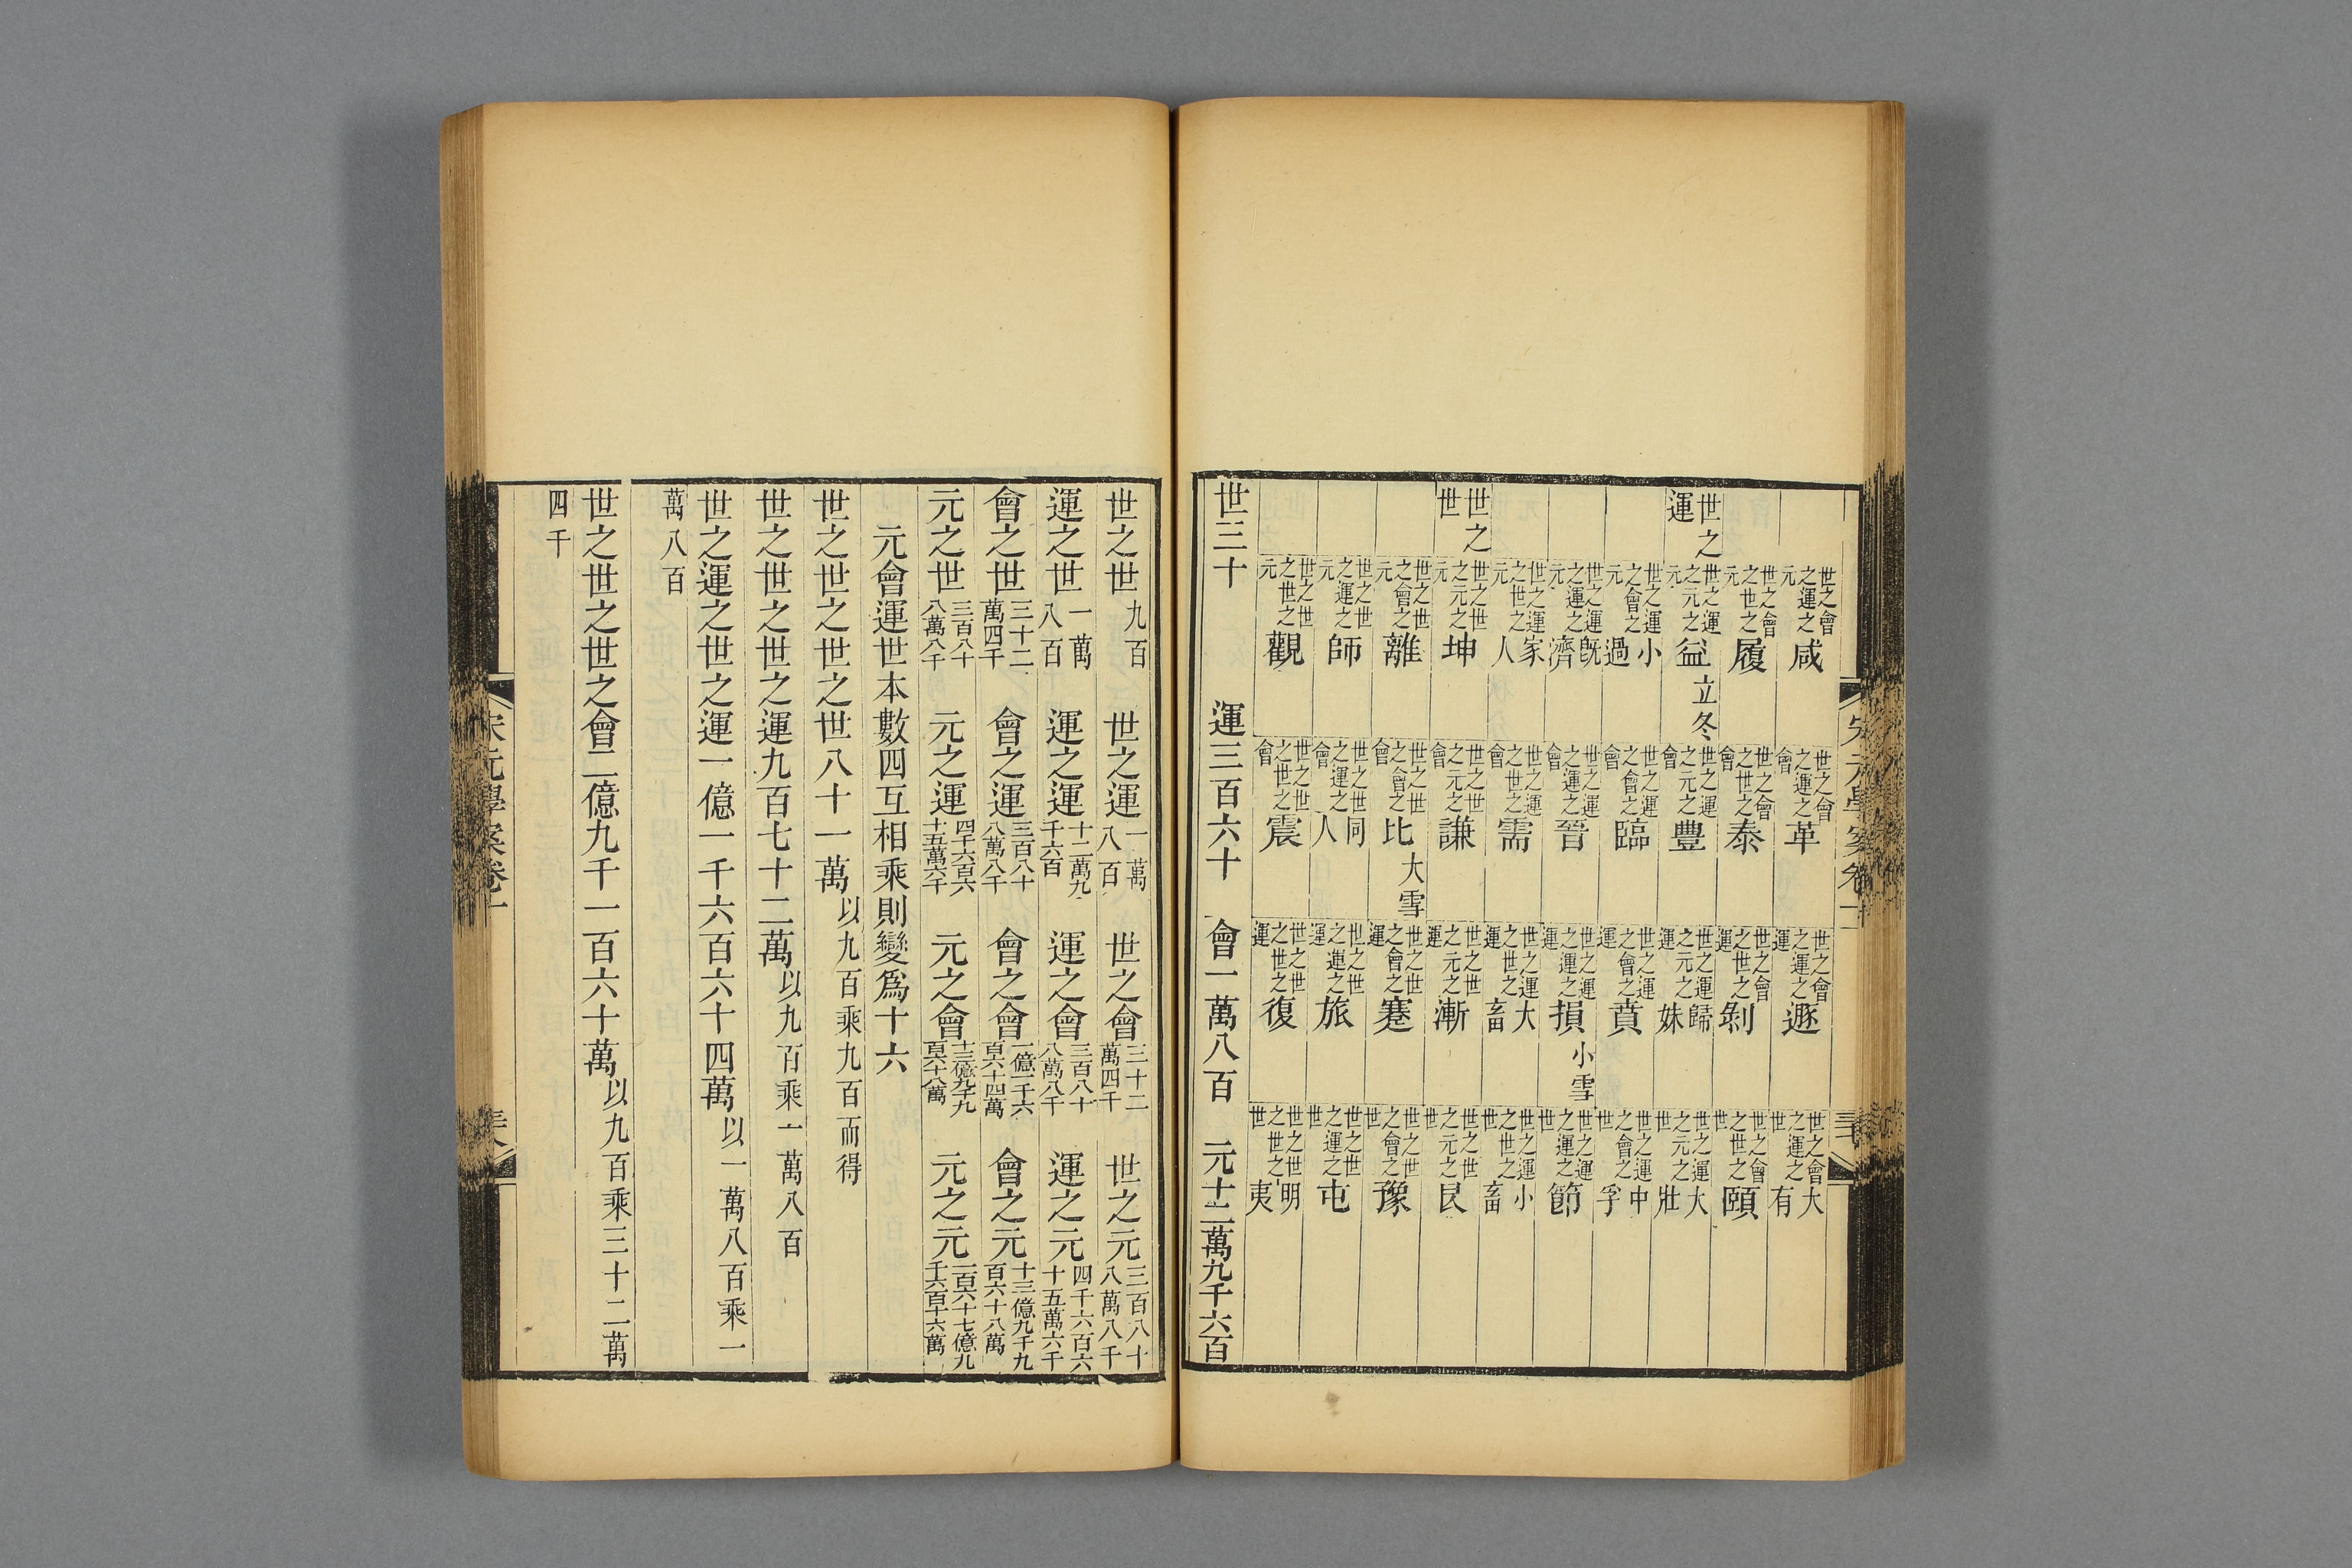 世之會之運之元 咸 世之會之運之會 革 世之會之運之運 遯 世之會之運之世 大有
世之會之世之元 履 世之會之世之會 泰 世之會之世之運 剝 世之會之世之世 頤
世之運 世之運之元之元 益 立冬 世之運之元之會 豐 世之運之元之運 歸妹 世之運之元之世 大壯
世之運之會之元 小過 世之運之會之會 臨 世之運之會之運 賁 世之運之會之世 中孚
世之運之運之元 旣濟 世之運之運之會 晉 世之運之運之運 損 小雪 世之運之運之世 節
世之運之世之元 家人 世之運之世之會 需 世之運之世之運 大畜 世之運之世之世 小畜
世之世 世之世之元之元 坤 世之世之元之會 謙 世之世之元之運 漸 世之世之元之世 艮
世之世之會之元 離 世之世之會之會 比 大雪 世之世之會之運 蹇 世之世之會之世 豫
世之世之運之元 師 世之世之運之會 同人 世之世之運之運 旅 世之世之運之世 屯
世之世之世之元 觀 世之世之世之會 震 世之世之世之運 復 世之世之世之世 明夷
世三十 運三百六十 會一萬八百 元十二萬九千六百
世之世九百 世之運一萬八百 世之會三十二萬四千 世之元三百八十八萬八千
運之世一萬八百 運之運十二萬九千六百 運之會三百八十八萬八千 運之元四千六百六十五萬六千
會之世三十二萬四千 會之運三百八十八萬八千 會之會一億一千六百六十四萬 會之元十三億九千九百六十八萬
元之世三百八十八萬八千 元之運四千六百六十五萬六千 元之會十三億九千九百六十八萬 元之元一百六十七億九千六百十六萬
元會運世本數四互相乘則變爲十六
世之世之世之世八十一萬以九百乘九百而得
世之世之世之運九百七十二萬以九百乘一萬八百
世之運之世之運一億一千六百六十四萬以一萬八百乘一
萬八百
世之世之世之會二億九千一百六十萬以九百乘三十二萬
四千
宋元學案卷十